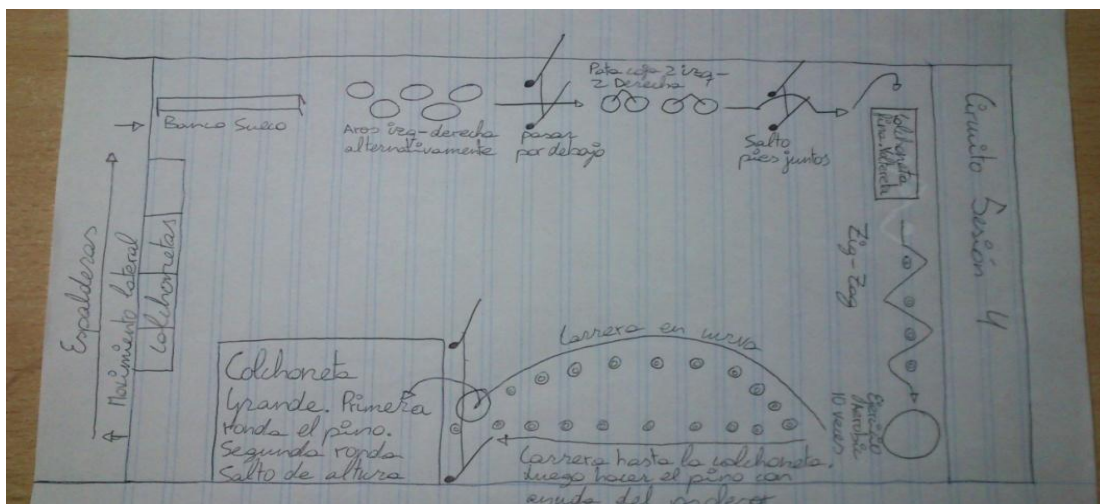 Circuito Sesión 4
Espalderas
Movimiento lateral
Colchonetas
Banco Sueco
Aros izq-derecha
alternativamente
pasar
por debajo
Pata coja 2 izq-
2 Derecha
Salto
pies juntos
Colchoneta
Zig-Zag
Ejercicio
10 veces
Carrera en curva
Colchoneta
Grande. Primera
ronda el pino.
Segunda ronda
Salto de altura
Carrera hasta la colchoneta.
Luego hacer el pino con
ayuda del